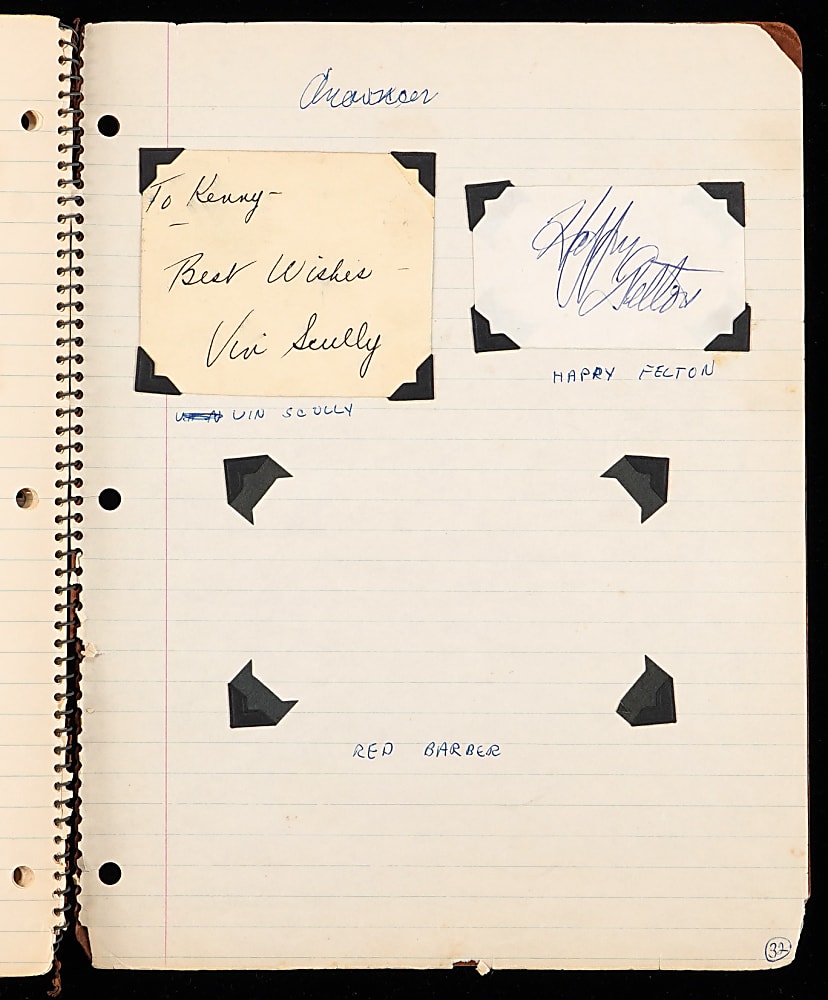 To Kenny-
Best Wishes -
Vin Scully
Happy
Felton
VIN SCULLY
HAPPY FELTON
RED BARBER
32